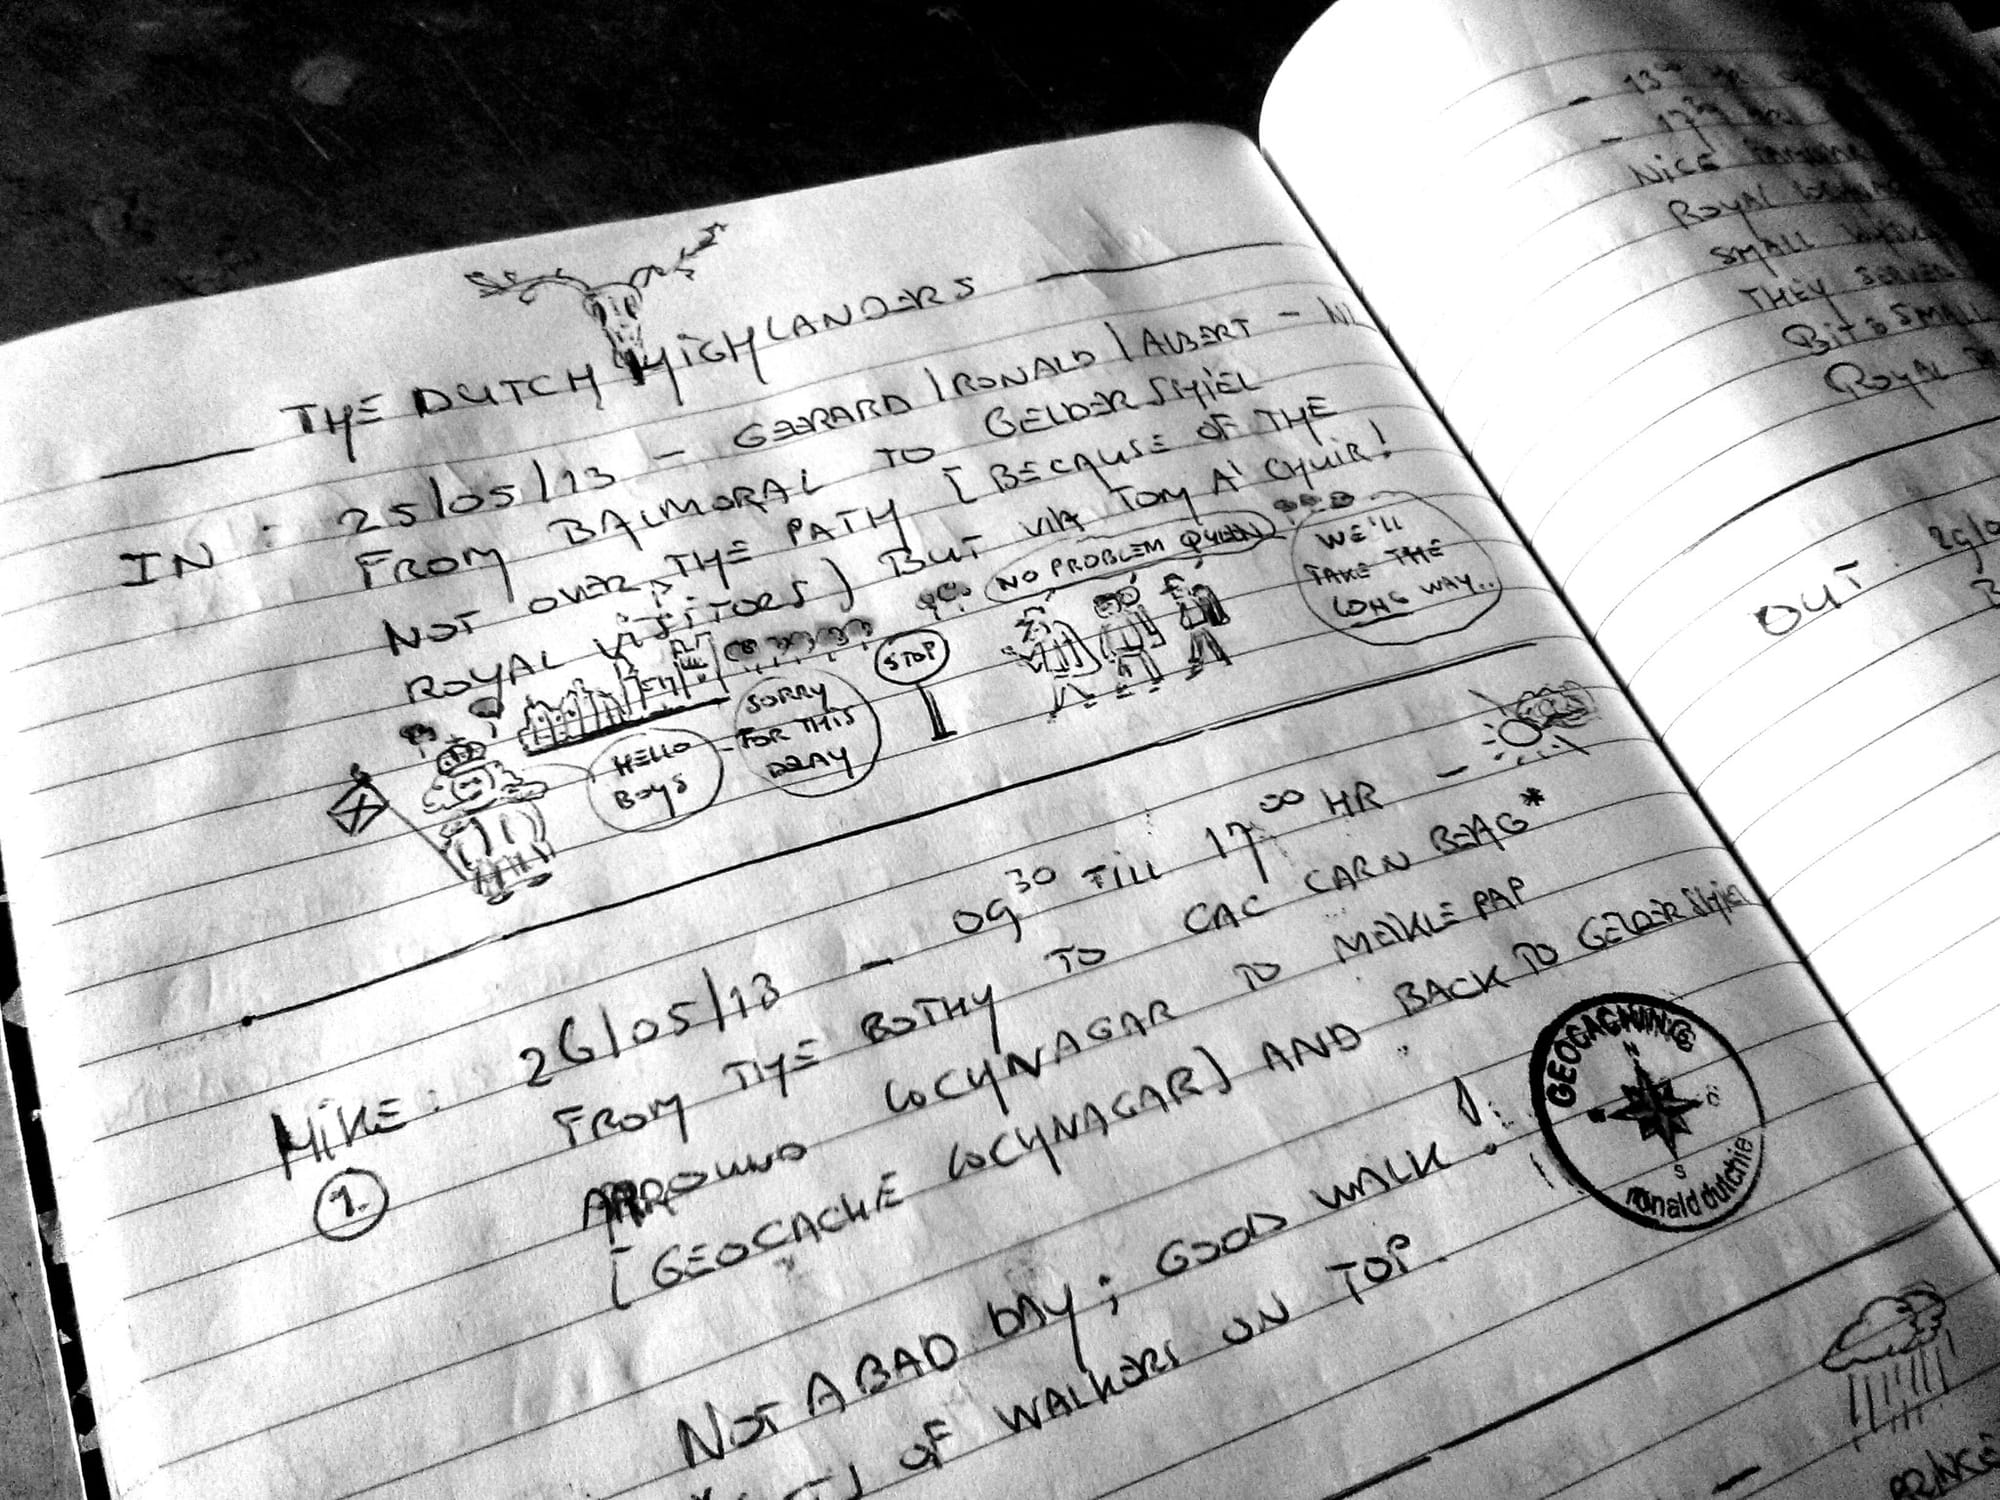 THE DUTCH HIGHLANDERS
IN : 25/05/13 - GERARD / RONALD / ALBERT - NL
FROM BALMORAL TO GELDER SHIEL
NOT OVER THE PATH [BECAUSE OF THE
ROYAL VISITORS) BUT VIA TOM A' CHUIR!
NO PROBLEM QUEEN
WE'LL
TAKE THE
LONG WAY..
STOP
HELLO
BOYS
SORRY
FOR THIS
DELAY
HIKE: 26/05/13 - 09 30 TILL 17 00 HR -
1.
FROM THE BOTHY TO CAC CARN BEAG*
ARROUND LOCHNAGAR TO MEIKLE PAP
[GEOCACHE LOCHNAGAR) AND BACK TO GELDER SHIEL
NOT A BAD DAY; GOOD WALK!
OF WALKERS ON TOP.
GEOCACHING
N
S
ronalddutchie
- 13
- 17
NICE
ROYAL
SMALL
THEY SERVED
BIT SMALL
ROYAL
OUT :